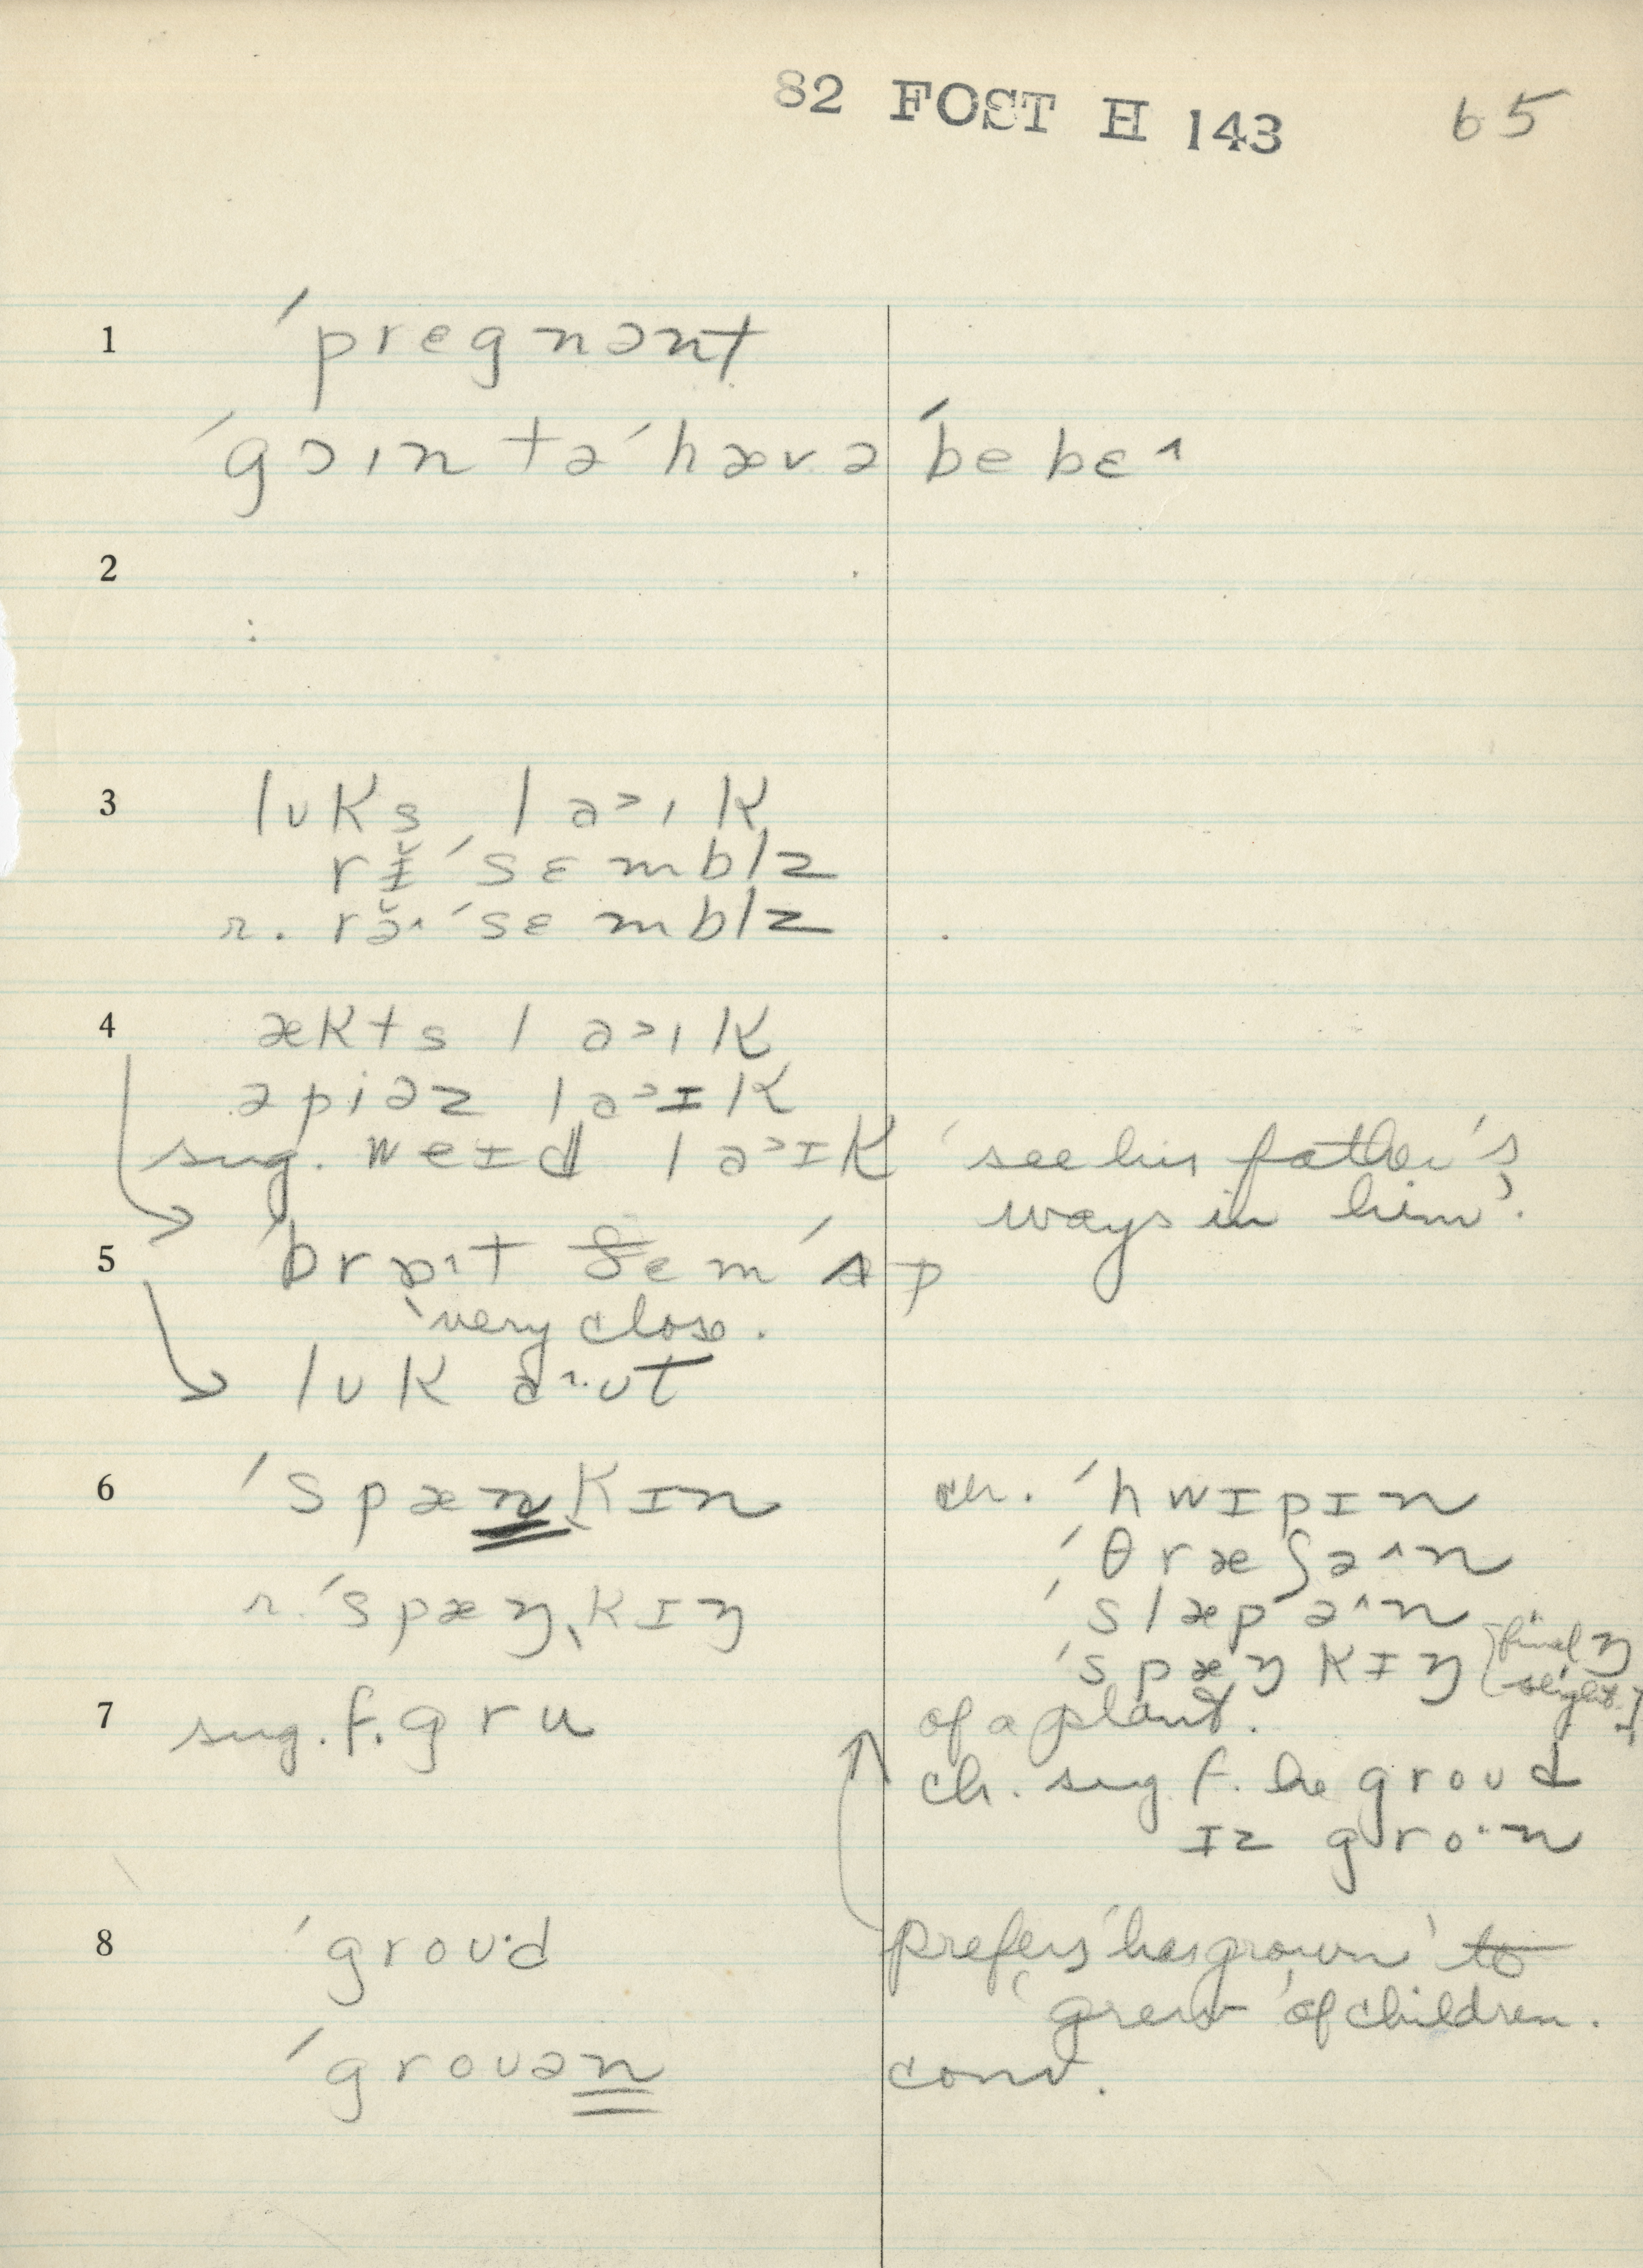 82 FOST H 143 65
1 ˈprɛgnənt
ˈgɔɪn tə ˈhæv ə ˈbebɛ^
2
3 lʊks la>ɪk
rɪ̆ˈsɛmblz
r. rə̆^ˈsɛmblz
4 ækts la>ɪk
əpiəz la>ɪk
sug. weɪd la>ɪk 'see his father's
ways in him'.
5 ˈbrɔt ðem ˈʌp
'very close.
lʊk aʊt
6 ˈspænkɪn ch. ˈhwɪpɪn
ˈθræʃə^n
r. ˈspæŋˌkɪŋ ˈslæpə^n
ˈspæŋkɪŋ final ŋ
slight
7 sug. f. gru of a plant.
ch. sug f. he groʊd
ɪz gro·n
8 ˈgroʊ·d prefers 'has grown' to
'grew' of children.
ˈgroʊən conv.